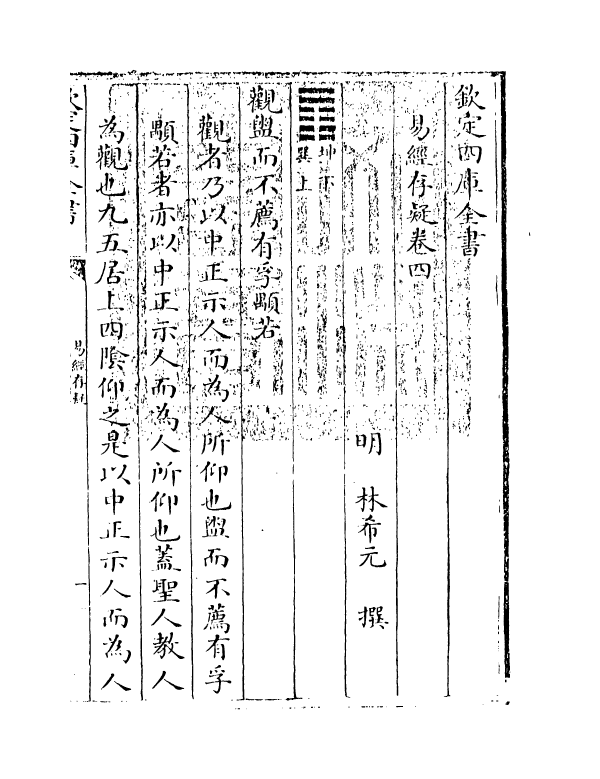 欽定四庫全書
易經存疑卷四
明 林希元 撰
坤下
巽上
觀盥而不薦有孚顒若
觀者乃以中正示人而為人所仰也盥而不薦有孚
顒若者亦以中正示人而為人所仰也蓋聖人教人
為觀也九五居上四陰仰之是以中正示人而為人
欽定四庫全書
易經存疑
一